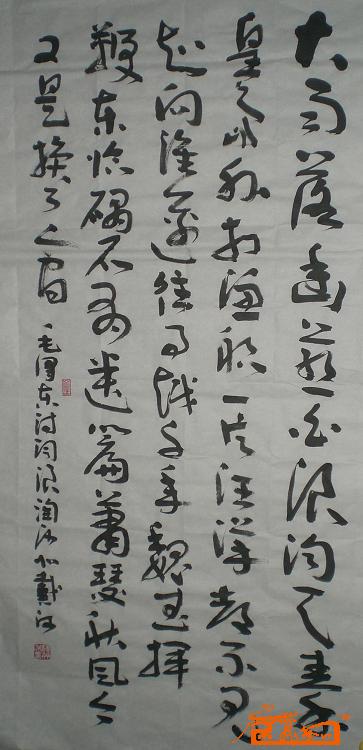 大雨落幽燕白浪滔天秦
皇岛外打渔船一片汪洋都不見
知向誰边往事越千年魏武揮
鞭东临碣石有遗篇蕭瑟秋风今
又是换了人间 毛泽东诗词浪淘沙北戴河